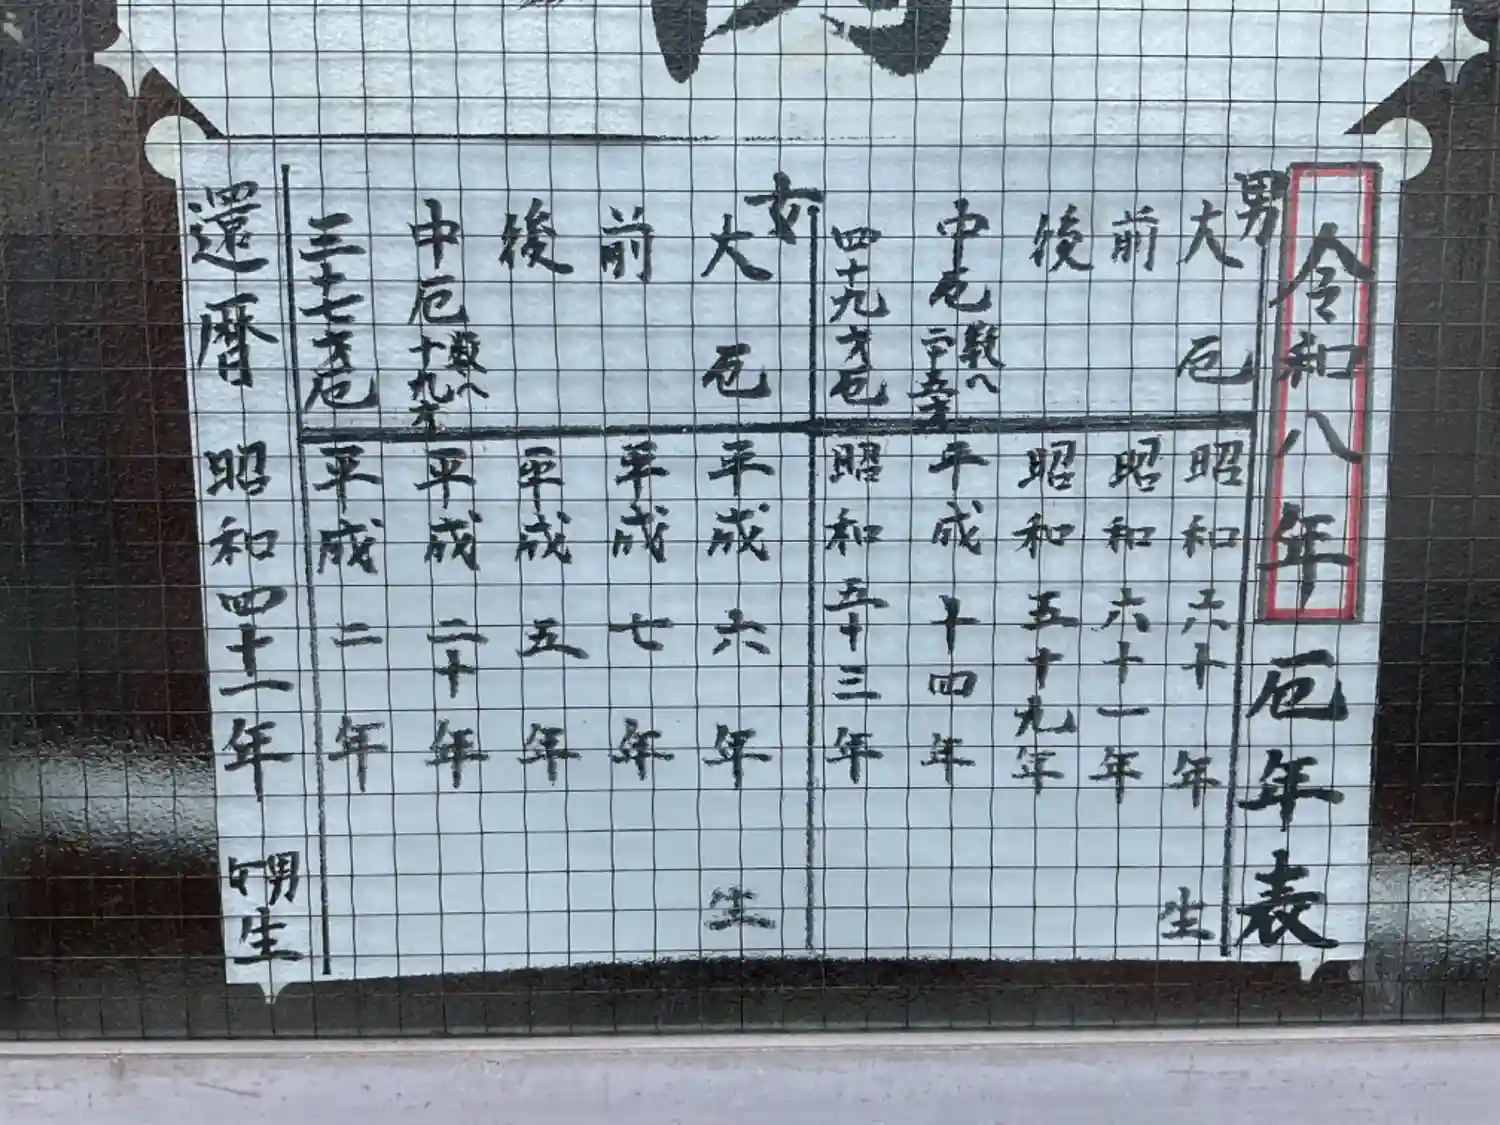 令和八年 厄年表
男
大厄 昭和六十年 生
前 昭和六十一年
後 昭和五十九年
中厄 数へ二十五才 平成十四年
四十九才厄 昭和五十三年
女
大厄 平成六年 生
前 平成七年
後 平成五年
中厄 数へ十九才 平成二十年
三十七才厄 平成二年
還暦 昭和四十一年 男女生